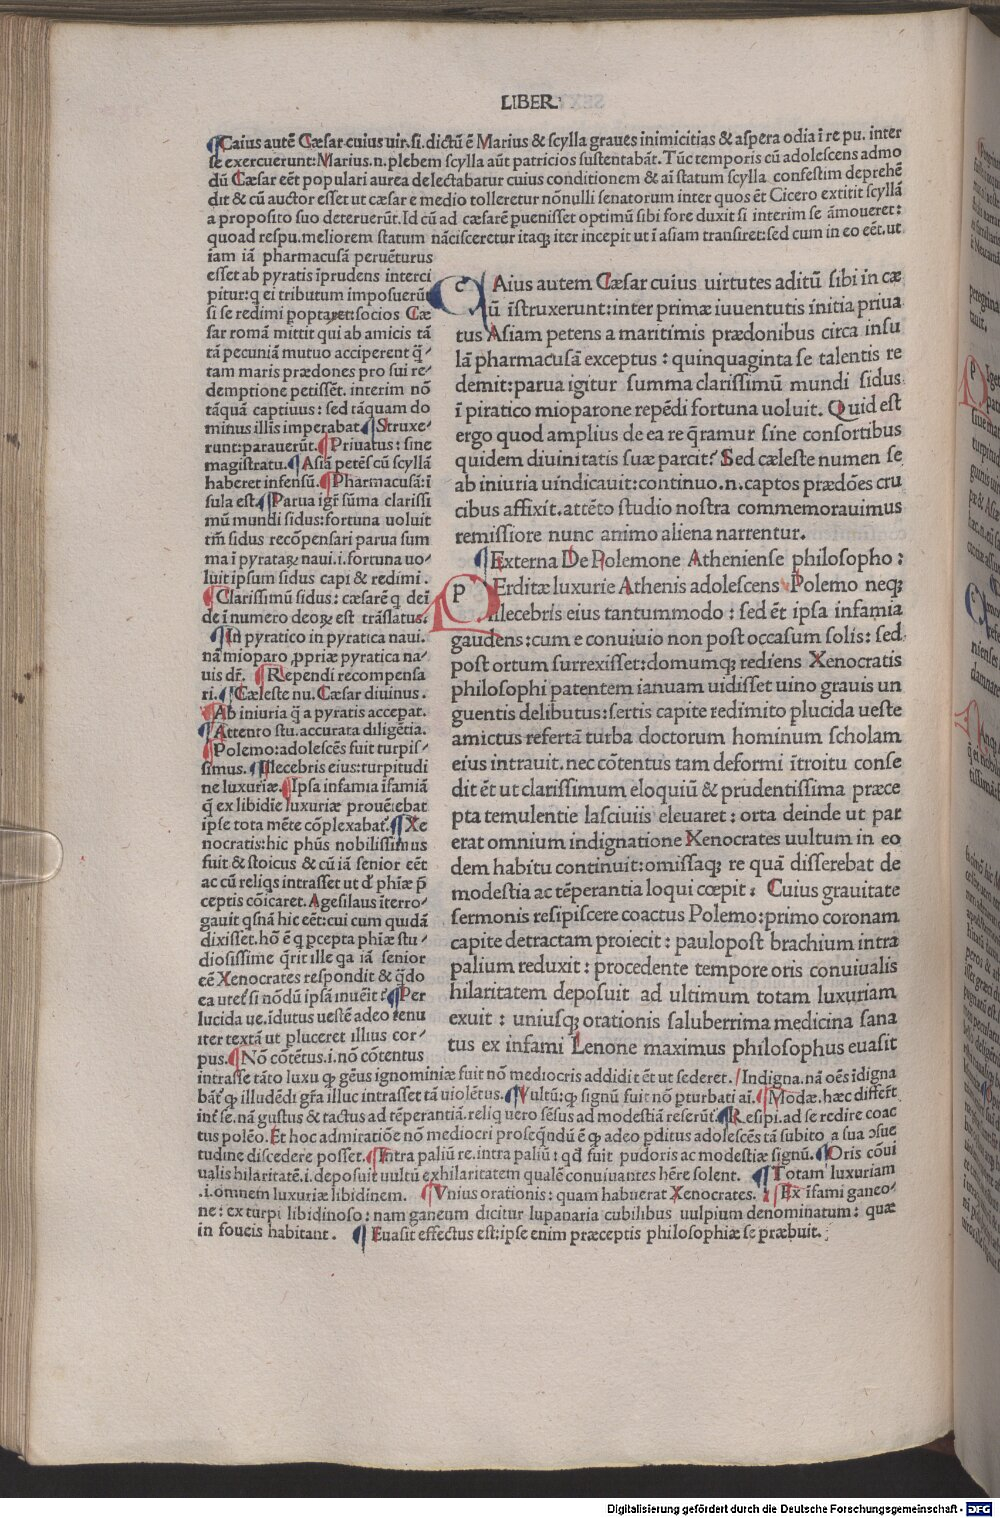 LIBER
¶Caius autē Cæsar cuius uir. si. dictū ē Marius & scylla graues inimicitias & aspera odia ī re pu. inter
se exercuerunt: Marius. n. plebem scylla aūt patricios sustentabāt. Tūc temporis cū adolescens admo
dū Cæsar eēt populari aurea delectabatur cuius conditionem & aī statum scylla confestim deprehē
dit & cū auctor esset ut cæsar e medio tolleretur nōnulli senatorum inter quos ēt Cicero extitit scyllā
a proposito suo deteruerūt. Id cū ad cæsarē puenisset optimū sibi fore duxit si interim se āmoueret:
quoad respu. meliorem statum nācisceretur itaq; iter incepit ut ī asiam transiret: sed cum in eo eēt. ut
iam iā pharmacusā peruēturus
esset ab pyratis īprudens interci
pitur: q ei tributum imposuerūt
si se redimi poptaret: socios Cæ
sar romā mittit qui ab amicis tā
tā pecuniā mutuo acciperent q̄
tam maris prædones pro sui re
demptione petissēt. interim nō
tāquā captiuus: sed tāquam do
minus illis imperabat. ¶Struxe
runt: parauerūt. ¶Priuatus: sine
magistratu. ¶Asiā petēs cū scyllā
haberet infensū. ¶Pharmacusā: ī
sula est. ¶Parua igr̄ sūma clarissi
mū mundi sidus: fortuna uoluit
tm̄ sidus recōpensari parua sum
ma ī pyrataȝ naui. i. fortuna uo
luit ipsum sidus capi & redimi.
¶Clarissimū sidus: cæsarē q deī
de ī numero deoȝ est trāslatus.
¶In pyratico in pyratica naui.
nā mioparo ꝓpriæ pyratica na
uis dr̄. ¶Rependi recompensa
ri. ¶Cæleste nu. Cæsar diuinus.
¶Ab iniuria q̄ a pyratis accepat.
¶Attento stu. accurata diligētia.
¶Polemo: adolescēs fuit turpis
simus. ¶Illecebris eius: turpitudi
ne luxuriæ. ¶Ipsa infamia īfamiā
q̄ ex libidīe luxuriæ prouēiebat
ipse tota mēte cōplexabat̄. ¶Xe
nocratis: hic phūs nobilissimus
fuit & stoicus & cū iā senior eēt
ac cū reliqs intrasset ut d̄ phīæ p̄
ceptis cōicaret. Agesilaus īterro
gauit qsnā hic eēt: cui cum quidā
dixisset. hō ē q pcepta phīæ stu
diosissime q̄rit ille qa iā senior
eē Xenocrates respondit & q̄do
ea utet̄ si nōdū ipsā inuēit? ¶Per
lucida ue. īdutus uestē adeo tenu
iter textā ut pluceret illius cor
pus. ¶Nō cōtētus. i. nō cōtentus
CAius autem Cæsar cuius uirtutes aditū sibi in cæ
lū īstruxerunt: inter primæ iuuentutis initia priua
tus Asiam petens a maritimis prædonibus circa insu
lā pharmacusā exceptus: quinquaginta se talentis re
demit: parua igitur summa clarissimū mundi sidus
ī piratico mioparone repēdi fortuna uoluit. Quid est
ergo quod amplius de ea re q̄ramur sine consortibus
quidem diuinitatis suæ parcit? Sed cæleste numen se
ab iniuria uindicauit: continuo. n. captos prædōes cru
cibus affixit. attēto studio nostra commemorauimus
remissiore nunc animo aliena narrentur.
¶Externa De Polemone Atheniense philosopho:
PErditæ luxurie Athenis adolescens Polemo neq;
illecebris eius tantummodo: sed ēt ipsa infamia
gaudens: cum e conuiuio non post occasum solis: sed
post ortum surrexisset: domumq; rediens Xenocratis
philosophi patentem ianuam uidisset uino grauis un
guentis delibutus: sertis capite redimito plucida ueste
amictus refertā turba doctorum hominum scholam
eius intrauit. nec cōtentus tam deformi ītroitu conse
dit ēt ut clarissimum eloquiū & prudentissima præce
pta temulentie lasciuiis eleuaret: orta deinde ut par
erat omnium indignatione Xenocrates uultum in eo
dem habitu continuit: omissaq; re quā disserebat de
modestia ac tēperantia loqui cœpit. Cuius grauitate
sermonis resipiscere coactus Polemo: primo coronam
capite detractam proiecit: paulopost brachium intra
palium reduxit: procedente tempore oris conuiualis
hilaritatem deposuit ad ultimum totam luxuriam
exuit: uniusq; orationis saluberrima medicina sana
tus ex infami Lenone maximus philosophus euasit
intrasse tāto luxu ꝙ gēus ignominiæ fuit nō mediocris addidit ēt ut sederet. Indigna. nā oēs īdigna
bāt̄ ꝙ illudēdi gr̄a illuc intrasset tā uiolētus. ¶Vultū: ꝙ signū fuit nō pturbati aī. ¶Modæ. hæc differt
int̄ se. nā gustus & tactus ad tēperantiā. reliq uero sēsus ad modestiā referūt̄. ¶Resipi. ad se redire coac
tus polēo. Et hoc admiratiōe nō mediocri proseq̄ndū ē ꝙ adeo pditus adolescēs tā subito a sua ɔsue
tudine discedere posset. ¶Intra paliū re. intra paliū: qd̄ fuit pudoris ac modestiæ signū. ¶Oris cōui
ualis hilaritatē. i. deposuit uultū exhilaritatem qualē conuiuantes hēre solent. ¶Totam luxuriam
. i. omnem luxuriæ libidinem. ¶Vnius orationis: quam habuerat Xenocrates. ¶Ex īfami ganeo
ne: ex turpi libidinoso: nam ganeum dicitur lupanaria cubilibus uulpium denominatum: quæ
in foueis habitant. ¶Euasit effectus est: ipse enim præceptis philosophiæ se præbuit.
Digitalisierung gefördert durch die Deutsche Forschungsgemeinschaft - DFG